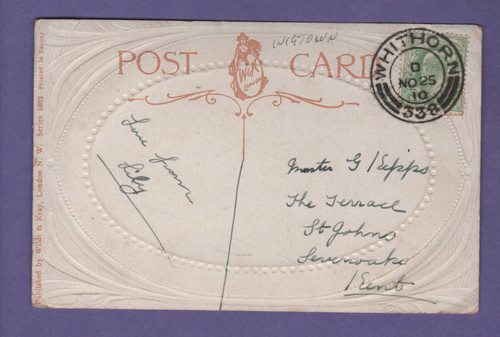 WIGTOWN
POST CARD
Wildt & Kray
WHITHORN
D
NO 25
10
338
Love from
Lily
Master G Kipps
The Terrace
St Johns
Sevenoaks
Kent
Published by Wildt & Kray, London N. W. Series 1803